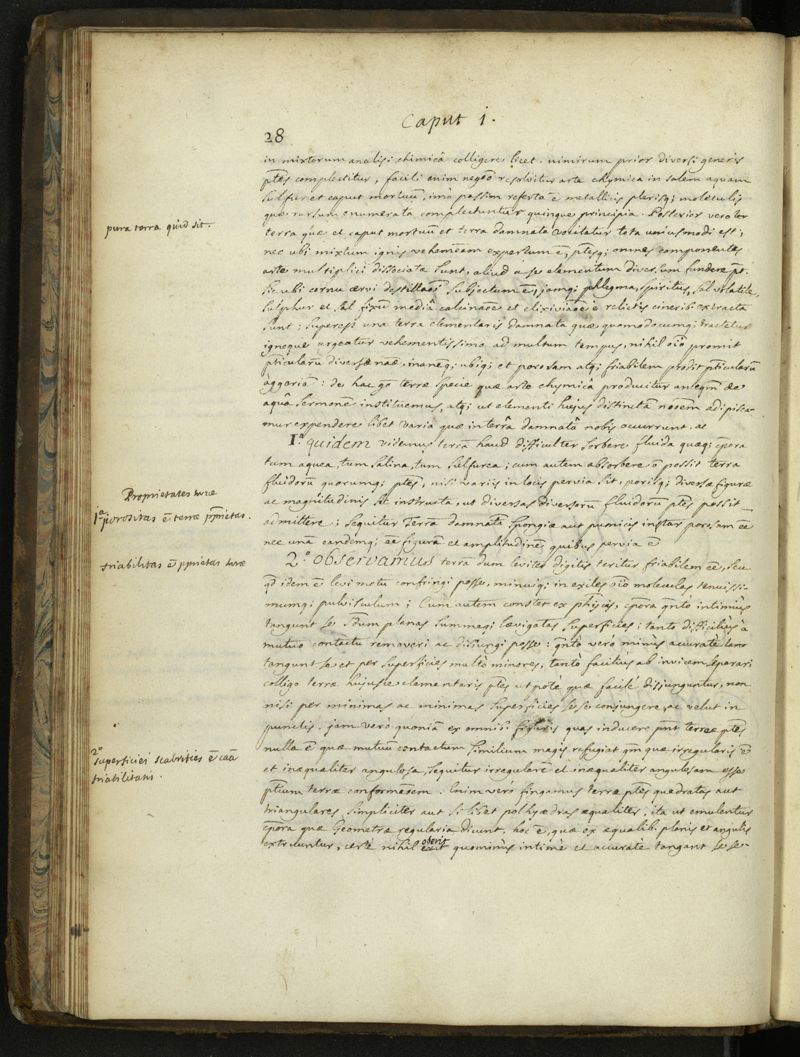 Caput 1.
28
in mixtorum analisi chimicâ colligere licet. nimirum prior diversi generis
ptēs complectitur, facili enim negōo resolvitur arte chymica in salem aquam
sulfur et caput mortuū, imò passim referta ē metallicis plerisq; moleculis
quæ rursum enumerata complectuntur quinque principia. Posterior vero
pura terra quid sit.
terra quæ et caput mortuū et terra damnata vocitatur tota unius modi est;
nec ubi mixtum ignis vehemēam expertum ē, ptēsq; omnes componentes
arte multiplici dissociatæ sunt, aliud a se elementum diversum fundere pt.
sic ubi cornu cervi destillaōi subjectum ē, jamq; phlegma, spiritus, sal volatile,
sulphur et sal fixū mediâ calcinaōe et elixiviaōe è relictis cineribus extracta
sunt; superest una terra elementaris damnata quæ quomodocumq; tractetur
igneque urgeatur vehementissimo ad multum tempus, nihil oīo promit
pticularū diversæ naæ, inaneq; ubiq; et porosam atq; friabilem prodit pticularū
aggeriem: de hac go terræ specie quæ arte chymicâ producitur antequam de
aquâ sermonē instituemus, atq; ut elementi hujus distinctā noōem adipisca-
mur expendere libet varia quæ in terrâ damnatâ nobis occurrunt. ac
1º. quidem videmus terrā haud difficulter sorbere fluida quæq; cpora
tum aquea, tum salina, tum sulfurea; cum autem absorbere ō possit terra
fluidorū quorumq; ptēs, nisi variis in locis pervia sit, porisq; diversæ figuræ
Proprietates terræ
1ª. porositas ē terræ pprietas.
ac magnitudinis sit instructa, ut diversas diversorū fluidorū ptēs possit
admittere; sequitur terrā damnatā spongiæ aut pumicis instar porosam ēē
nec unā eandemq; ēē figurā et amplitudinē quibus pervia ē
friabilitas ē pprietas terræ
2º. observamus terrā dum leviter digitis teritur friabilem ēē, seu
qd idem ē levi motu confringi posse, minuiq; in exiles oīo moleculas tenuissi-
mumq; pulvisculum; Cum autem constet ex phisicis, cpora qnto intimius
tangunt se sdum planas summeq; lævigatas superficies; tanto difficilius à
mutuo contactu removeri ac disjungi posse: qnto verò minus accuratè
tangunt se et per superficies multò minores, tantò facilius ab invicem separari
colligo terræ hujusce elementaris ptēs utpotè quæ facilè disjunguntur, non
nisi per minimas ac minimas superficies sese conjungere ac velut in
punctis. jam verò quoniā ex omnibus figuris quas induere pnt terræ ptēs
nulla ē quæ mutuū contactum similium magis refugiat qm quæ irregularis ē
2º
superficiei scabrities ē caā
friabilitatis.
et inæqualiter angulosa, sequitur irregularē et inæqualiter angulosam esse
ptium terræ conformaōem. Enim verò fingamus terræ ptēs quadratas aut
triangulares simpliciter aut si libet polhyædras æqualiter, ita ut emulentur
cpora quæ Geometræ regularia dicunt, hoc ē, quæ ex æqualibus planis et angulis
extruuntur, certè nihil oberit quominùs intimè et accuratè tangant sese-